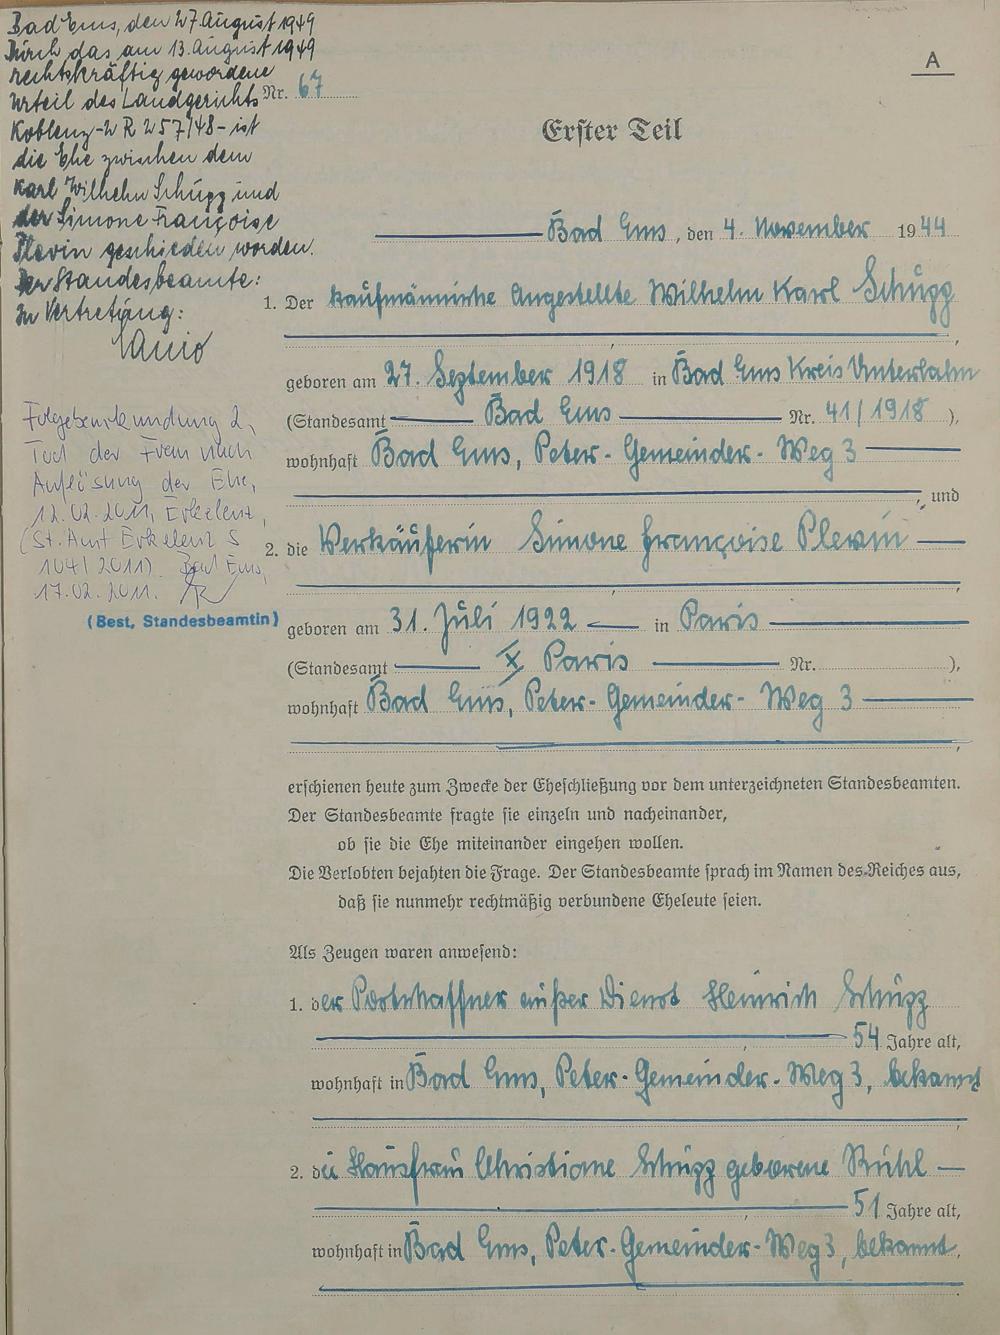 Bad Ems, den 27. August 1949
Durch das am 13. August 1949
rechtskräftig gewordene
Urteil des Landgerichts
Koblenz - 2 R 257/48 - ist
die Ehe zwischen dem
Karl Wilhelm Schupp und
der Simone Françoise
Plevin geschieden worden.
Der Standesbeamte:
In Vertretung:
Folgebeurkundung 2,
Tod der Frau nach
Auflösung der Ehe,
12.02.2011, Erkelenz,
(St.Amt Erkelenz S
104/2011). Bad Ems,
17.02.2011.
(Best, Standesbeamtin)
A
Nr. 67
Erster Teil
Bad Ems, den 4. November 1944
1. Der kaufmännische Angestellte Wilhelm Karl Schupp
geboren am 27. September 1918 in Bad Ems Kreis Unterlahn
(Standesamt Bad Ems Nr. 41/1918),
wohnhaft Bad Ems, Peter-Gemeinder-Weg 3
, und
2. die Verkäuferin Simone Françoise Plevin
geboren am 31. Juli 1922 in Paris
(Standesamt X Paris Nr. ),
wohnhaft Bad Ems, Peter-Gemeinder-Weg 3
erschienen heute zum Zwecke der Eheschließung vor dem unterzeichneten Standesbeamten.
Der Standesbeamte fragte sie einzeln und nacheinander,
ob sie die Ehe miteinander eingehen wollen.
Die Verlobten bejahten die Frage. Der Standesbeamte sprach im Namen des Reiches aus,
daß sie nunmehr rechtmäßig verbundene Eheleute seien.
Als Zeugen waren anwesend:
1. der Postschaffner außer Dienst Heinrich Schupp
54 Jahre alt,
wohnhaft in Bad Ems, Peter-Gemeinder-Weg 3, bekannt
2. die Hausfrau Christiane Schupp geborene Rühl
51 Jahre alt,
wohnhaft in Bad Ems, Peter-Gemeinder-Weg 3, bekannt.